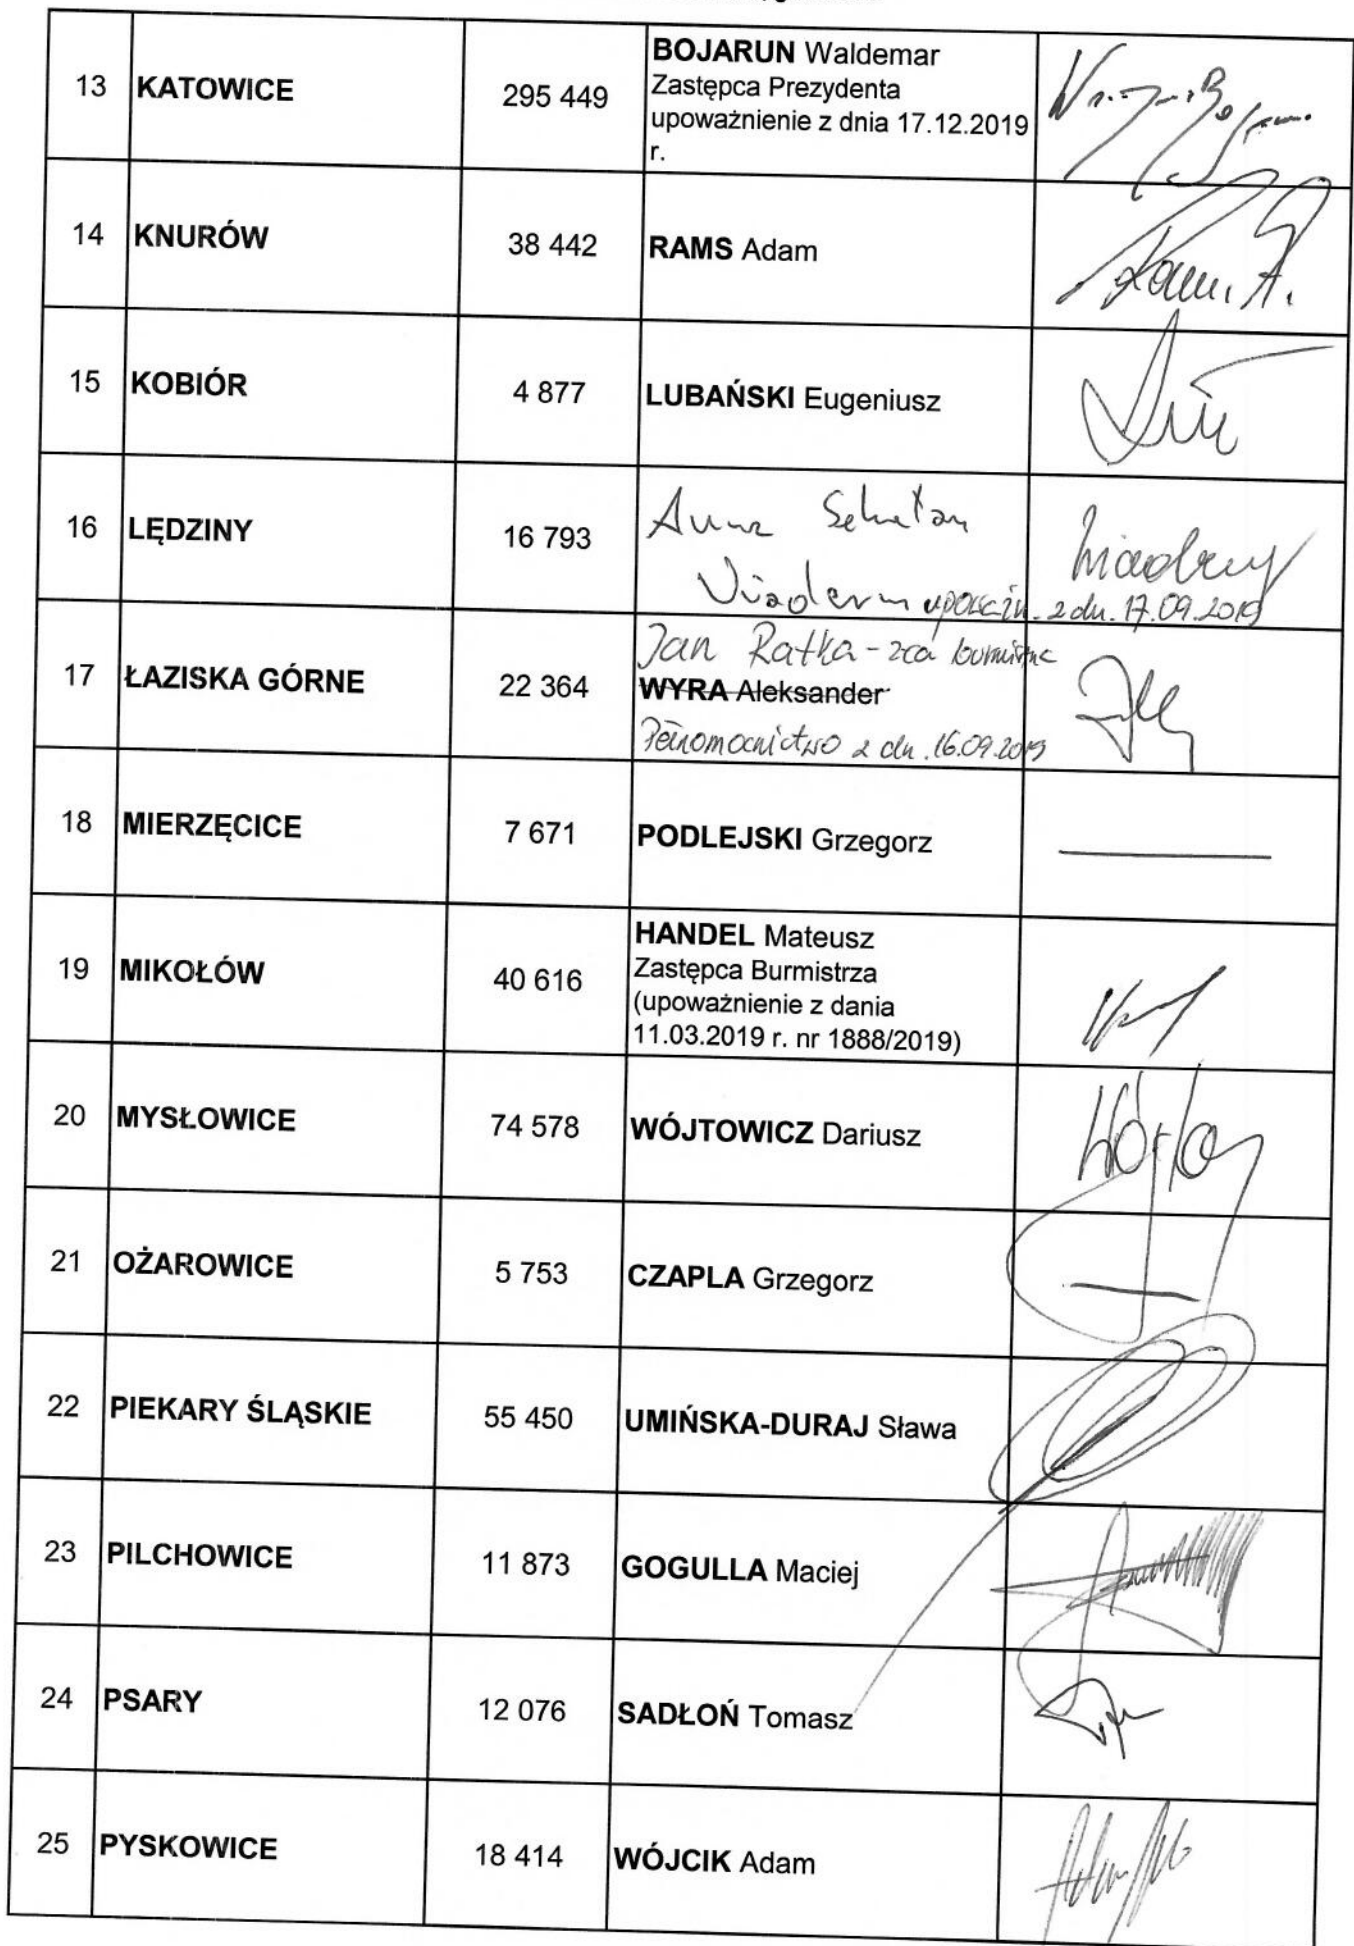 13 KATOWICE 295 449 BOJARUN Waldemar
Zastępca Prezydenta
upoważnienie z dnia 17.12.2019
r.
14 KNURÓW 38 442 RAMS Adam
15 KOBIÓR 4 877 LUBAŃSKI Eugeniusz
16 LĘDZINY 16 793 Anna
z dn. 17.09.2019
17 ŁAZISKA GÓRNE 22 364 Jan Ratka - zca burmistrza
WYRA Aleksander
Pełnomocnictwo z dn. 16.09.2019
18 MIERZĘCICE 7 671 PODLEJSKI Grzegorz
19 MIKOŁÓW 40 616 HANDEL Mateusz
Zastępca Burmistrza
(upoważnienie z dania
11.03.2019 r. nr 1888/2019)
20 MYSŁOWICE 74 578 WÓJTOWICZ Dariusz
21 OŻAROWICE 5 753 CZAPLA Grzegorz
22 PIEKARY ŚLĄSKIE 55 450 UMIŃSKA-DURAJ Sława
23 PILCHOWICE 11 873 GOGULLA Maciej
24 PSARY 12 076 SADŁOŃ Tomasz
25 PYSKOWICE 18 414 WÓJCIK Adam